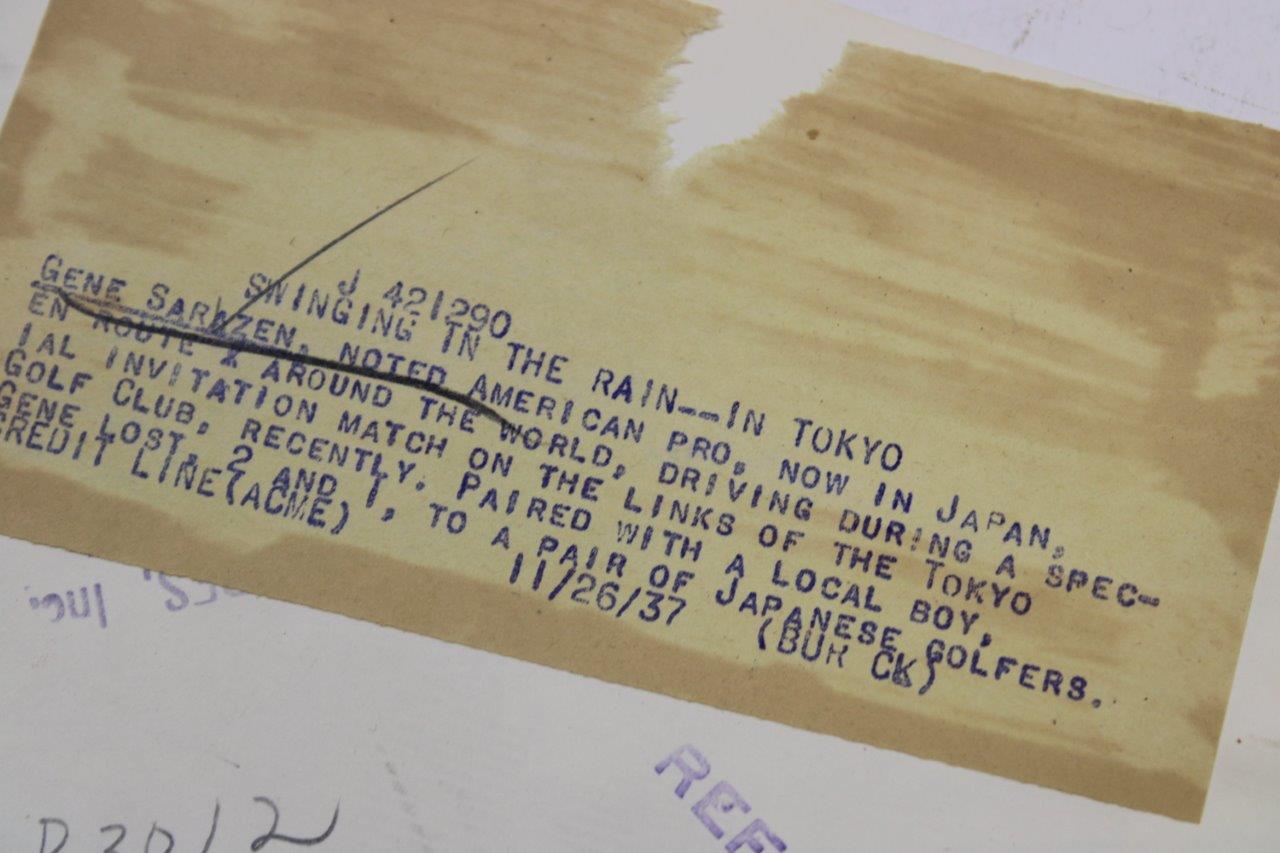 J 421290
SWINGING IN THE RAIN--IN TOKYO
GENE SARAZEN, NOTED AMERICAN PRO, NOW IN JAPAN,
EN ROUTE X AROUND THE WORLD, DRIVING DURING A SPEC-
IAL INVITATION MATCH ON THE LINKS OF THE TOKYO
GOLF CLUB, RECENTLY. PAIRED WITH A LOCAL BOY,
GENE LOST, 2 AND 1, TO A PAIR OF JAPANESE GOLFERS.
CREDIT LINE(ACME) 11/26/37 (BUR CK)
Inc.
REF